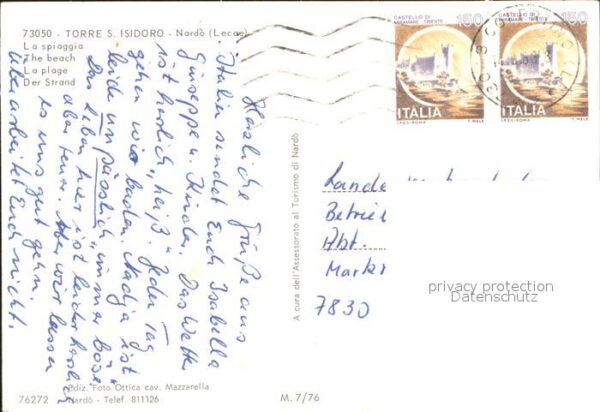 73050 - TORRE S. ISIDORO - Nardò (Lecce)
La spiaggia
The beach
La plage
Der Strand
Herzliche Grüße aus
Italien sendet Euch Isabella
Giuseppe u. Kinder. Das Wetter
ist herrlich "heiß". Jeden Tag
gehen wir baden. Nadja ist
leider unpässlich "immer böse"
Das Leben hier ist leider herrlich
aber teuer. Aber wir lassen
es uns gut gehn.
Überarbeitet Euch nicht.
Ediz. Foto Ottica cav. Mazzarella
Nardò - Telef. 811126
76272
M. 7/76
A cura dell'Assessorato al Turismo di Nardò
CASTELLO DI
MIRAMARE - TRIESTE
150
ITALIA
I.P.Z.S.-ROMA
T. MELE
CASTELLO DI
MIRAMARE - TRIESTE
150
ITALIA
I.P.Z.S.-ROMA
T. MELE
Lande
Betrie
Abt.
Markt
7830
privacy protection
Datenschutz